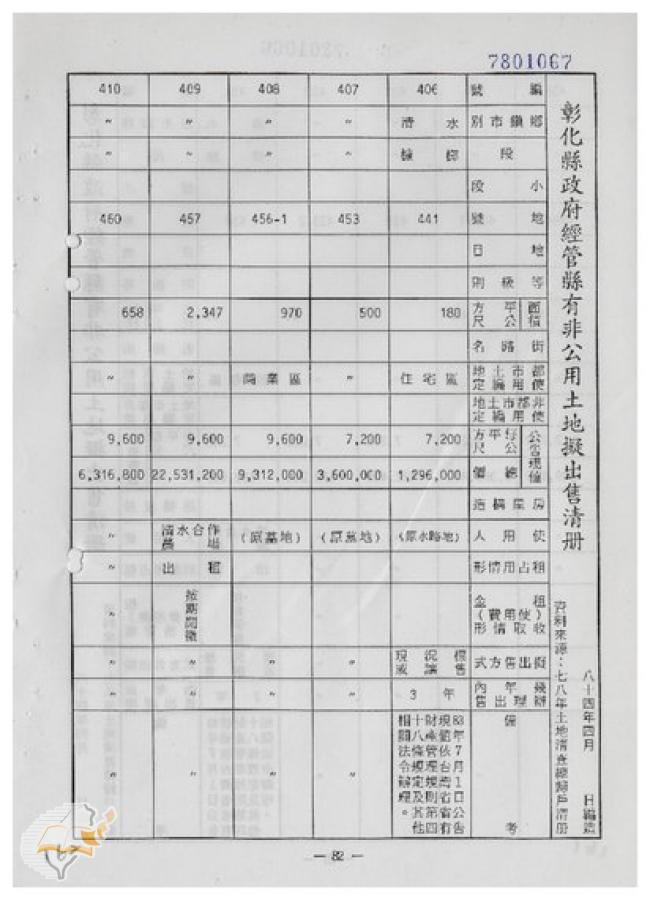 7801067
彰化縣政府經管縣有非公用土地擬出售清册
資料來源：七八年土地清查總歸戶清册
八十四年四月 日編造
410 409 408 407 406 編號
〃 〃 〃 〃 清水 鄉鎮市別
〃 〃 〃 〃 槺榔 段
小段
460 457 456-1 453 441 地號
地目
等級則
658 2,347 970 500 180 面積 平方公尺
街路名
〃 〃 商業區 〃 住宅區 都市土地使用編定
非都市土地使用編定
9,600 9,600 9,600 7,200 7,200 公告現值 平方公尺
6,316,800 22,531,200 9,312,000 3,600,000 1,296,000 總價
房屋構造
〃 清水合作農場 (原墓地) (原墓地) (原水路地) 使用人
〃 出租 租占用情形
〃 按期開徵 租金(使用費)收取情形
〃 〃 〃 〃 現況標售或讓售 擬出售方式
〃 〃 〃 〃 3年 幾年內辦理出售
〃 〃 〃 〃 83年7月1日公告現值依台灣省省有財產管理規則第四十八條規定及其他相關法令辦理。 備考
— 82 —